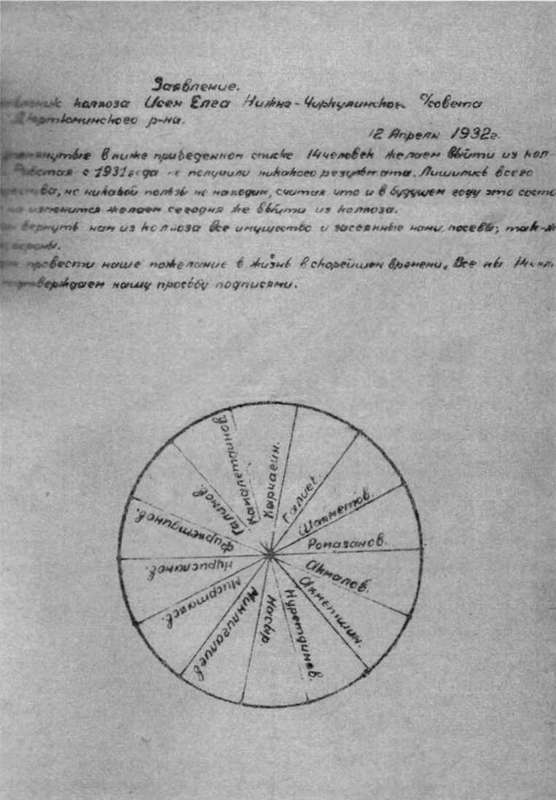 Заявление.
колхоза Исен Елга Нижне-Чиркулинскок с/совета
Дюртюлинского р-на.
12 Апреля 1932г.
в ниже приведенном списке 14 человек желаем выйти из кол
Работая с 1931 года не получили никакого результата. Лишились всего
но никакой пользы не находим, считая что и в будущем году это состо
изменится желаем сегодня же выйти из колхоза.
вернуть нам из колхоза все имущество и засеянные нами посевы, так-ж
провести наше пожелание в жизнь в скорейшем времени. Все мы 14 чел.
подтверждаем нашу просьбу подписями.
Кырчагин.
Галиев
Шаяхметов
Ромазанов.
Акмалов.
Ахметшин.
Нуретдинов.
Насыр
Миннигалиев
Мифтахов.
Нурисламов.
Фархетдинов.
Галимов.
Камалетдинов.